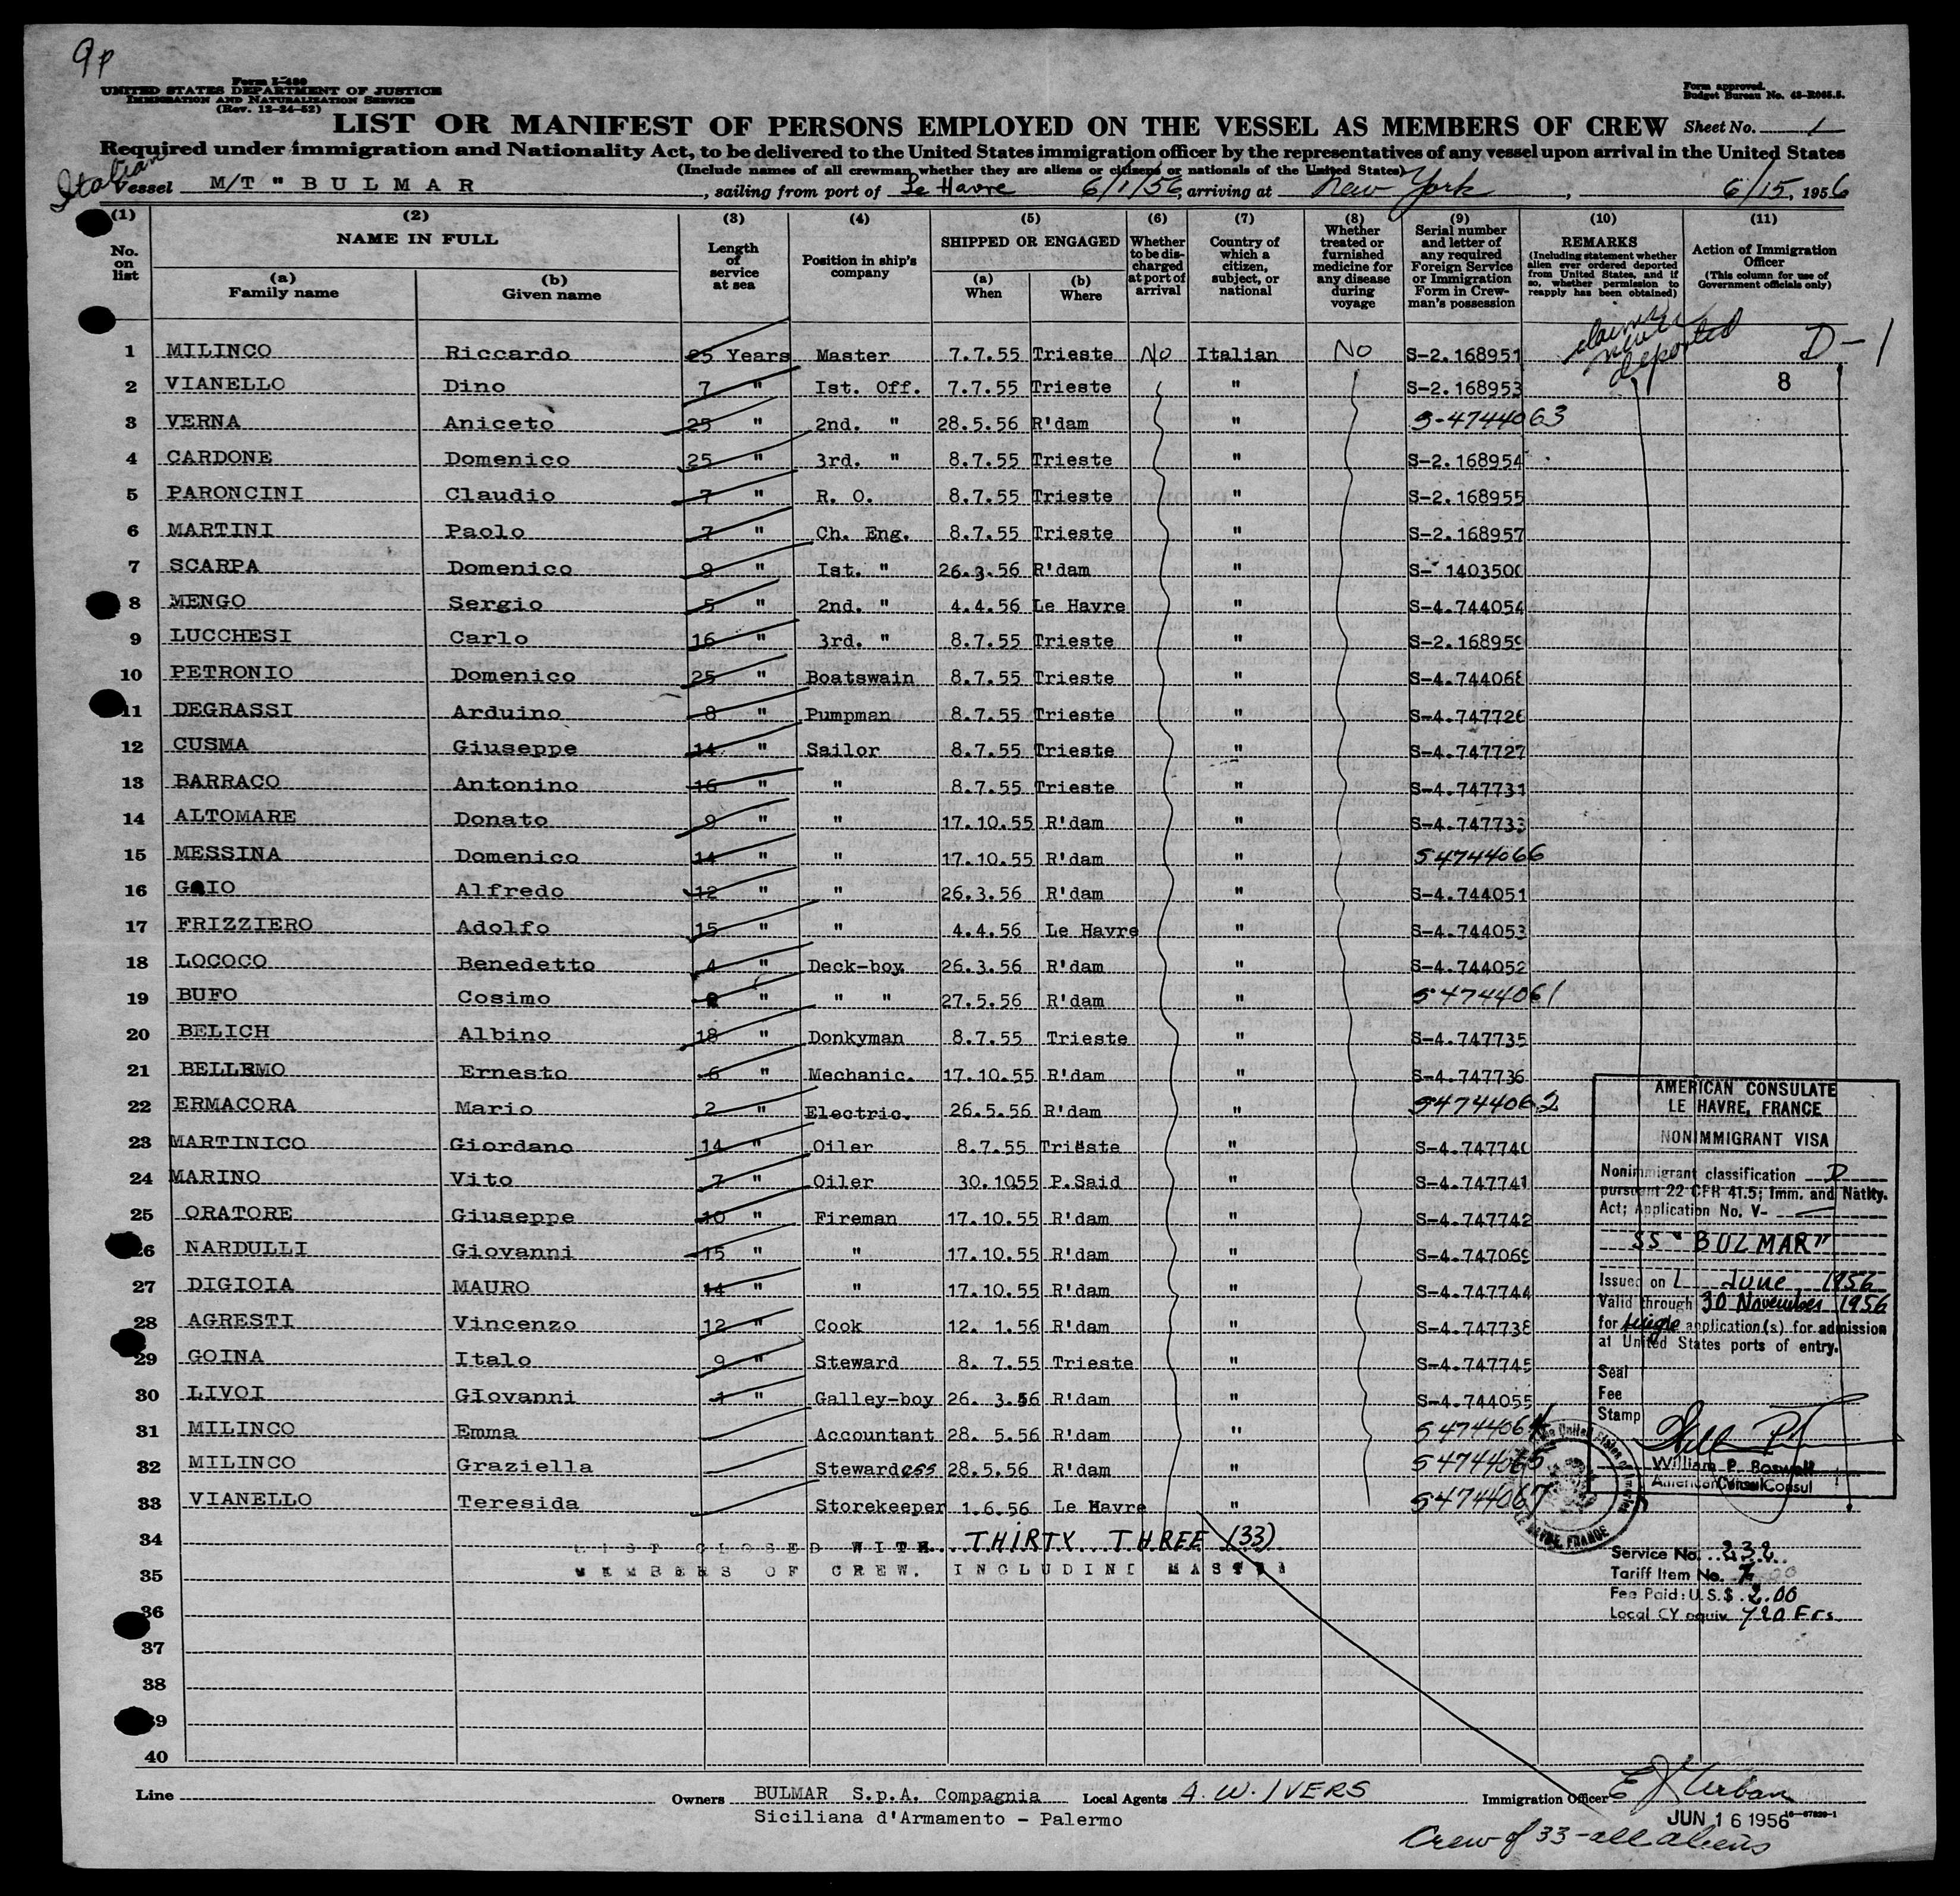 9p
Form I-480
UNITED STATES DEPARTMENT OF JUSTICE
IMMIGRATION AND NATURALIZATION SERVICE
(Rev. 12-24-52)
Form approved.
Budget Bureau No. 43-R065.5.
LIST OR MANIFEST OF PERSONS EMPLOYED ON THE VESSEL AS MEMBERS OF CREW Sheet No. 1
Required under immigration and Nationality Act, to be delivered to the United States immigration officer by the representatives of any vessel upon arrival in the United States
(Include names of all crewman whether they are aliens or citizens or nationals of the United States)
Italian
Vessel M/T " B U L M A R , sailing from port of Le Havre 6/1/56, arriving at New York , 6/15, 1956
(1) (2) (3) (4) (5) (6) (7) (8) (9) (10) (11)
No. on list
NAME IN FULL
(a) Family name
(b) Given name
Length of service at sea
Position in ship's company
SHIPPED OR ENGAGED
(a) When
(b) Where
Whether to be discharged at port of arrival
Country of which a citizen, subject, or national
Whether treated or furnished medicine for any disease during voyage
Serial number and letter of any required Foreign Service or Immigration Form in Crewman's possession
REMARKS
(Including statement whether alien ever ordered deported from United States, and if so, whether permission to reapply has been obtained)
Action of Immigration Officer
(This column for use of Government officials only)
1 MILINCO Riccardo 25 Years Master 7.7.55 Trieste No Italian No S-2.168951 deported D-1
2 VIANELLO Dino 7 " Ist. Off. 7.7.55 Trieste " S-2.168953 8
3 VERNA Aniceto 25 " 2nd. " 28.5.56 R'dam " S-4744063
4 CARDONE Domenico 25 " 3rd. " 8.7.55 Trieste " S-2.168954
5 PARONCINI Claudio 7 " R. O. 8.7.55 Trieste " S-2.168955
6 MARTINI Paolo 7 " Ch. Eng. 8.7.55 Trieste " S-2.168957
7 SCARPA Domenico 9 " Ist. " 26.3.56 R'dam " S- 1403500
8 MENGO Sergio 5 " 2nd. " 4.4.56 Le Havre " S-4.744054
9 LUCCHESI Carlo 16 " 3rd. " 8.7.55 Trieste " S-2.168959
10 PETRONIO Domenico 25 " Boatswain 8.7.55 Trieste " S-4.744068
11 DEGRASSI Arduino 8 " Pumpman 8.7.55 Trieste " S-4.747726
12 CUSMA Giuseppe 14 " Sailor 8.7.55 Trieste " S-4.747727
13 BARRACO Antonino 16 " " 8.7.55 Trieste " S-4.747731
14 ALTOMARE Donato 9 " " 17.10.55 R'dam " S-4.747733
15 MESSINA Domenico 14 " " 17.10.55 R'dam " S4744066
16 GAIO Alfredo 12 " " 26.3.56 R'dam " S-4.744051
17 FRIZZIERO Adolfo 15 " " 4.4.56 Le Havre " S-4.744053
18 LOCOCO Benedetto 4 " Deck-boy 26.3.56 R'dam " S-4.744052
19 BUFO Cosimo " " " 27.5.56 R'dam " S4744061
20 BELICH Albino 18 " Donkyman 8.7.55 Trieste " S-4.747735
21 BELLEMO Ernesto 6 " Mechanic. 17.10.55 R'dam " S-4.747736
22 ERMACORA Mario 2 " Electric. 26.5.56 R'dam " S4744062
23 MARTINICO Giordano 14 " Oiler 8.7.55 Trieste " S-4.747740
24 MARINO Vito 7 " Oiler 30.1055 P.Said " S-4.747741
25 ORATORE Giuseppe 10 " Fireman 17.10.55 R'dam " S-4.747742
26 NARDULLI Giovanni 15 " " 17.10.55 R'dam " S-4.747069
27 DIGIOIA MAURO 14 " " 17.10.55 R'dam " S-4.747744
28 AGRESTI Vincenzo 12 " Cook 12. 1.56 R'dam " S-4.747738
29 GOINA Italo 9 " Steward 8. 7.55 Trieste " S-4.747745
30 LIVOI GIovanni 1 " Galley-boy 26. 3.56 R'dam " S-4.744055
31 MILINCO Emma Accountant 28. 5.56 R'dam " S4744064
32 MILINCO Graziella Stewardess 28.5.56 R'dam " S4744065
33 VIANELLO Teresida Storekeeper 1.6.56 Le Havre " S4744067
34 LIST CLOSED WITH THIRTY THREE (33)
35 MEMBERS OF CREW. INCLUDING MASTER
36
37
38
39
40
AMERICAN CONSULATE
LE HAVRE, FRANCE
NONIMMIGRANT VISA
Nonimmigrant classification D
pursuant 22 CFR 41.5; Imm. and Natlty.
Act; Application No. V-
SS "BULMAR"
Issued on 1 June 1956
Valid through 30 November 1956
for single application(s) for admission
at United States ports of entry.
Seal
Fee
Stamp
William P. Boswell
American Consul
LE HAVRE, FRANCE
Service No. 232
Tariff Item No. 7
Fee Paid: U.S.$ 2.00
Local CY equiv. 720 Frs.
Line Owners BULMAR S.p.A. Compagnia Local Agents A. W. IVERS Immigration Officer E J Urban
Siciliana d'Armamento - Palermo
JUN 16 1956
16-67820-1
Crew of 33 - all aliens